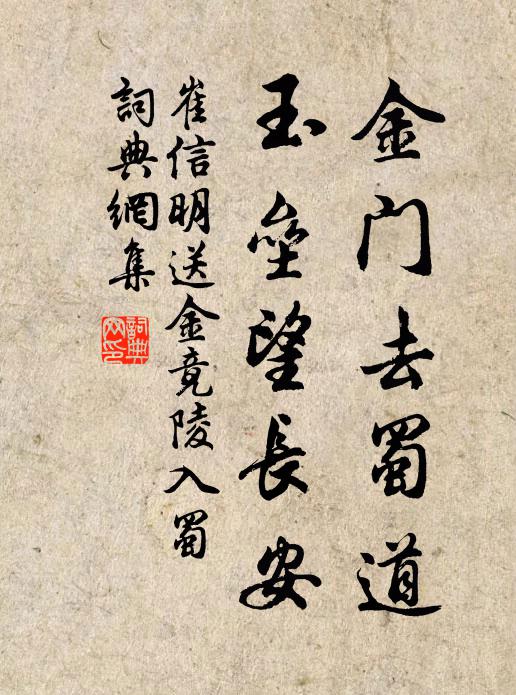 金门去蜀道
玉壘望長安
崔信明送金竟陵入蜀
詞典網集
詞典网印